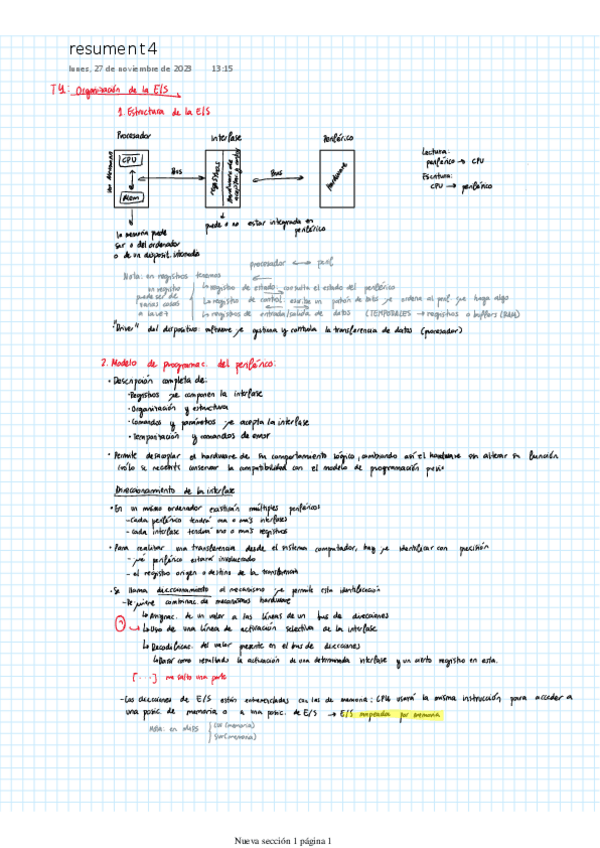 resumen t4
lunes, 27 de noviembre de 2023 13:15
T4: Organización de la E/S
1. Estructura de la E/S
Procesador Interfase Periférico
CPU
Mem
Bus
registros
Bus
hardware
Lectura:
periférico → CPU
Escritura:
CPU → periférico
la memoria puede
ser o del ordenador
o de un disposit. utilizado
puede o no estar integrada en
periférico
procesador ↔ perif
Nota: en registros tenemos
un registro
puede ser de
varias cosas
a la vez
↳ registro de estado: consulta el estado del periférico
↳ registro de control: escribe un patrón de bits y ordena al perif que haga algo
↳ registros de entrada/salida de datos (TEMPORALES → registros o buffers (RAM))
"Driver" del dispositivo: software que gestiona y controla la transferencia de datos (procesador)
2. Modelo de programac. del periférico:
• Descripción completa de:
• Registros que componen la interfase
• Organización y estructura
• Comandos y parámetros que acepta la interfase
• Temporización y comandos de error
• Permite desacoplar el hardware de su comportamiento lógico, cambiando así el hardware sin alterar su función
(sólo se necesita conservar la compatibilidad con el modelo de programación previo
Direccionamiento de la interfase
• En un mismo ordenador existirán múltiples periféricos
- Cada periférico tendrá una o más interfases
- cada interfase tendrá uno o más registros
• Para realizar una transferencia desde el sistema computador, hay que identificar con precisión
- qué periférico estará involucrado
- el registro origen o destino de la transferencia
• Se llama direccionamiento al mecanismo que permite esta identificación
- Requiere combinac. de mecanismos hardware
↳ Asignac. de un valor a las líneas de un bus de direcciones
↳ Uso de una línea de activación selectiva de la interfase
↳ Decodificac. del valor presente en el bus de direcciones
↳ Da como resultado la activación de una determinada interfase y un cierto registro en esta.
[...] me salto una parte
- Las direcciones de E/S están entremezcladas con las de memoria: CPU usará la misma instrucción para acceder a
una posic. de memoria o a una posic. de E/S → E/S mapeada por memoria
Nota: en MIPS
lw (memoria)
sw (memoria)
Nueva sección 1 página 1